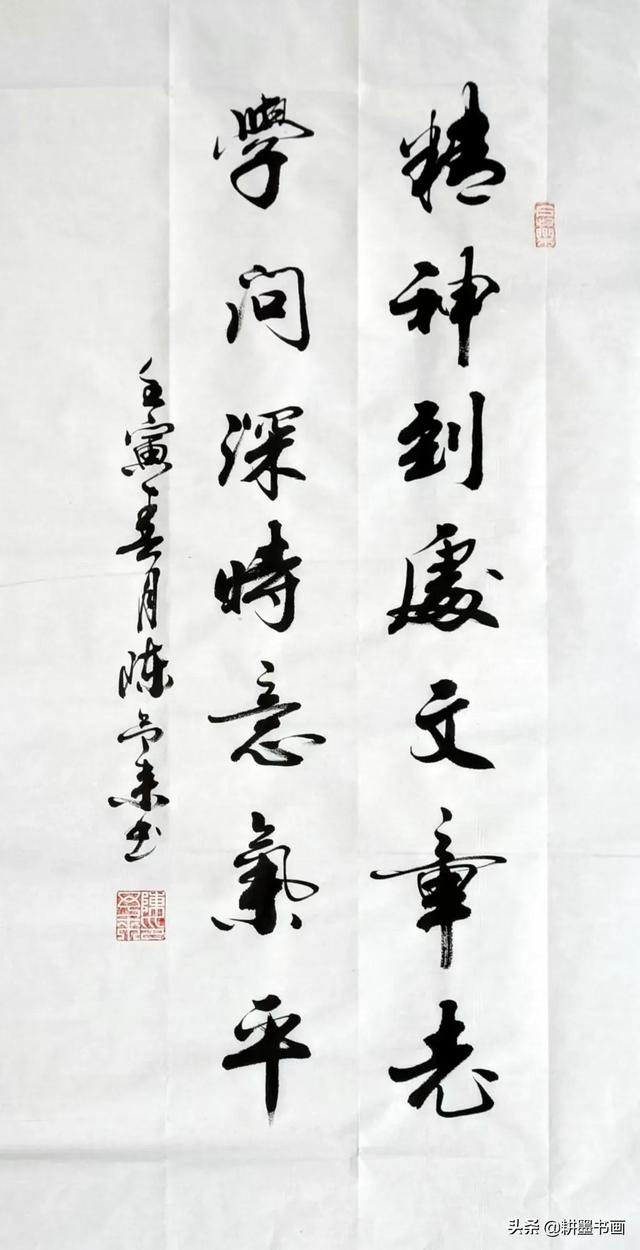 精神到處文章老
學問深時意氣平
壬寅春月陈予来书
头条 @耕墨书画